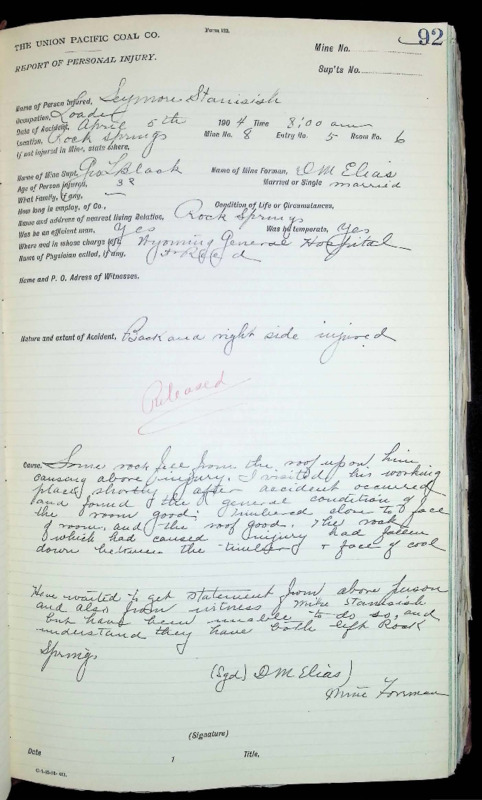 Form 132.
92
THE UNION PACIFIC COAL CO.
Mine No.
REPORT OF PERSONAL INJURY.
Sup'ts No.
Name of Person Injured, Seymore Stanisish
Occupation, Loader
Date of Accident, April 5th 1904 Time 8:00 am
Location, Rock Springs Mine No. 8 Entry No. 5 Room No. 6
If not injured in Mine, state where,
Name of Mine Supt. Geo L Black Name of Mine Forman, D M Elias
Age of Person injured, 38 Married or Single married
What Family, if any, —
How long in employ. of Co., Condition of Life or Circumstances,
Name and address of nearest living Relative, Rock Springs
Was he an efficient man, Yes Was he temperate, Yes
Where and in whose charge left, Wyoming General Hospital
Name of Physician called, if any,
Name and P. O. Adress of Witnesses.
Nature and extent of Accident, Back and right side injured
Released
Cause. Some rock fell from the roof upon him
causing above injury. I visited his working
place shortly after accident occurred
and found the general condition of
the room good, timbered close to face
of room, and the roof good. The rock
which had caused injury had fallen
down between the timbers & face of coal
Have waited to get statement from above person
and also from witness Mike Stanisish
but have been unable to do so, and
understand they have both left Rock
Springs
(Sgd) D M Elias)
Mine Forman
(Signature)
Date
Title,